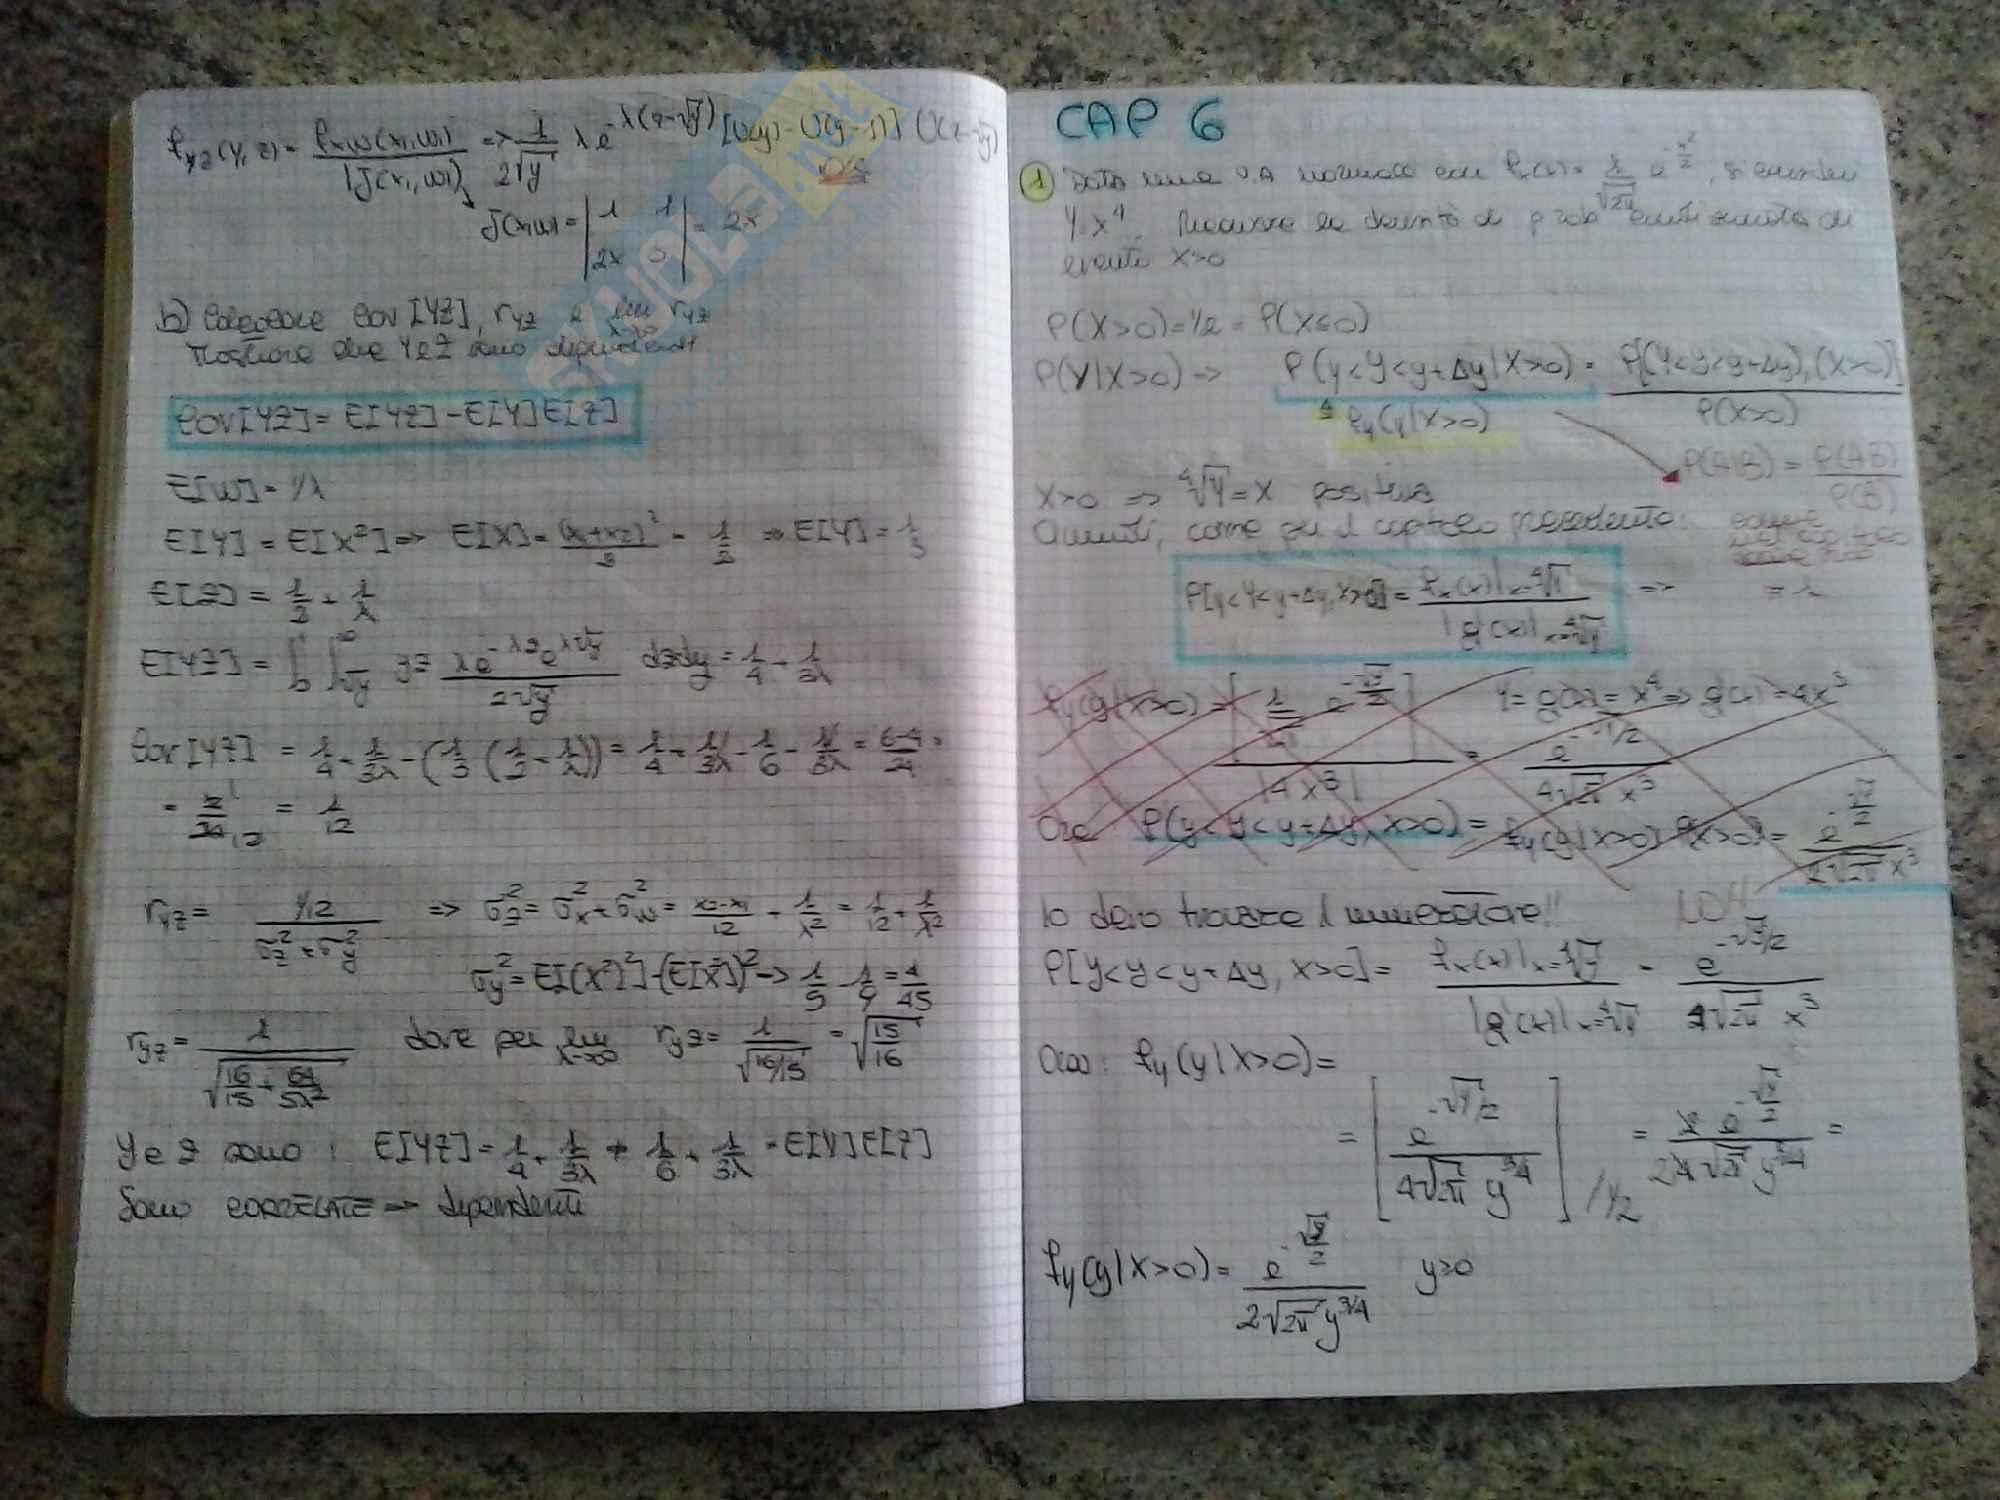 f_yz(y,z) = f_xw(x₁,w₁) / |J(x₁,w₁)| => 1/(2√y) λ e^(-λ(z-√y)) [U(y) - U(y-1)] U(z-√y)
J(x,w) = | 1 1 ; 2x 0 | = 2x
b) Cov[YZ], r_yz e lim r_yz
λ->∞
Mostrare che Y e Z sono dipendenti
COV[YZ] = E[YZ] - E[Y]E[Z]
E[W] = 1/λ
E[Y] = E[X²] => E[X] = (x₁+x₂)²/3 = 1/2 => E[Y] = 1/3
E[Z] = 1/2 + 1/λ
E[YZ] = ∫ ∫ yz λe^(-λz) e^(λ√y) / (2√y) dzdy = 1/4 + 1/3λ
Cov[YZ] = 1/4 + 1/3λ - (1/3 (1/2 + 1/λ)) = 1/4 + 1/3λ - 1/6 - 1/3λ = 6-4/24 =
= 2/24 = 1/12
r_yz = 1/12 / (σ_z² + σ_y²) => σ_z² = σ_x² + σ_w² = x₂-x₁/12 + 1/λ² = 1/12 + 1/λ²
σ_y² = E[(X²)²] - (E[X²])² -> 1/5 - 1/9 = 4/45
r_yz = 1 / √(16/15 + 64/5λ²) dove per lim λ->∞ r_yz = 1/√(16/15) = √(15/16)
Y e Z sono : E[YZ] = 1/4 + 1/3λ ≠ 1/6 + 1/3λ = E[Y]E[Z]
Sono CORRELATE => dipendenti
SKUOLA.net
CAP 6
1 Data una V.A normale con f_x(x) = 1/√2π e^(-x²/2), si consideri
Y = x⁴. Ricavare la densità di prob condizionata di
evento X>0
P(X>0) = 1/2 = P(X≤0)
P(Y|X>0) -> P(y<Y<y+Δy|X>0) = P[(y<Y<y+Δy),(X>0)] / P(X>0)
f_y(y|X>0)
P(A|B) = P(AB)/P(B)
X>0 => ⁴√y = x positiva
Quindi, come per il capitolo precedente:
P[y<Y<y+Δy, X>0] = f_x(x)|x=⁴√y / |g'(x)|x=⁴√y =>
f_y(y|X>0) = [1/√2π e^(-√y/2)] / |4x³| = e^(-√y/2) / 4√2π x³
Y = g(x) = x⁴ => g'(x) = 4x³
Ora: P(y<Y<y+Δy, X>0) = f_y(y|X>0) P(X>0) = e^(-√y/2) / 2√2π x³
Io devo trovare il numeratore!!
P[y<Y<y+Δy, X>0] = f_x(x)|x=⁴√y / |g'(x)|x=⁴√y = e^(-√y/2) / 4√2π x³
Ora: f_y(y|X>0) =
= [e^(-√y/2) / 4√2π y^(3/4)] / 1/2 = 2 e^(-√y/2) / 4√2π y^(3/4) =
f_y(y|X>0) = e^(-√y/2) / 2√2π y^(3/4) y>0